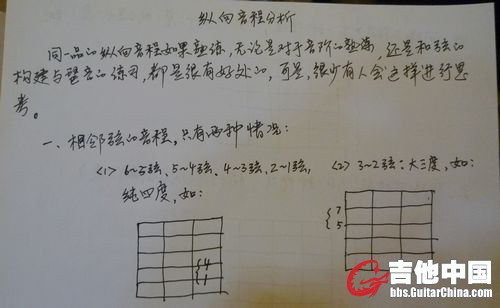 纵向音程分析
同一品的纵向音程如果熟练,无论是对于音阶的熟练,还是和弦的
构建与琶音的练习,都是很有好处的,可是,很少有人会这样进行思
考。
一、相邻弦的音程,只有两种情况:
<1> 6~5弦、5~4弦、4~3弦、2~1弦,
纯四度,如:
<2> 3~2弦:大三度,如:
4
1
7
5
吉他中国
bbs.GuitarChina.com